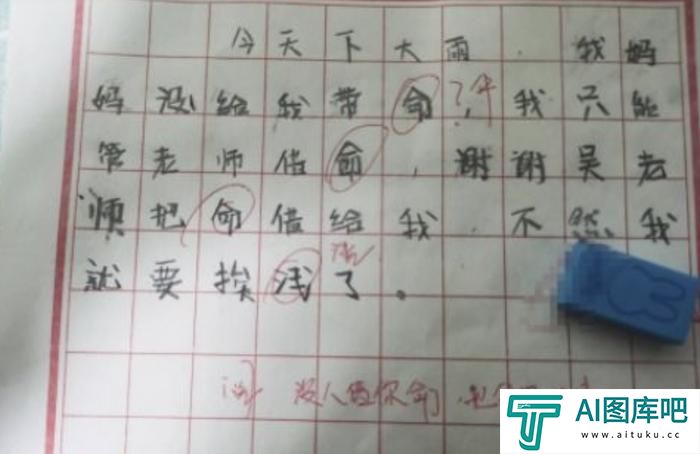 今天下大雨．我妈
妈没给我带命，我只能
管老师借命，谢谢吴老
师把命借给我，不然我
就要挨浅了。
没人借你命
AI图库吧
www.aituku.cc